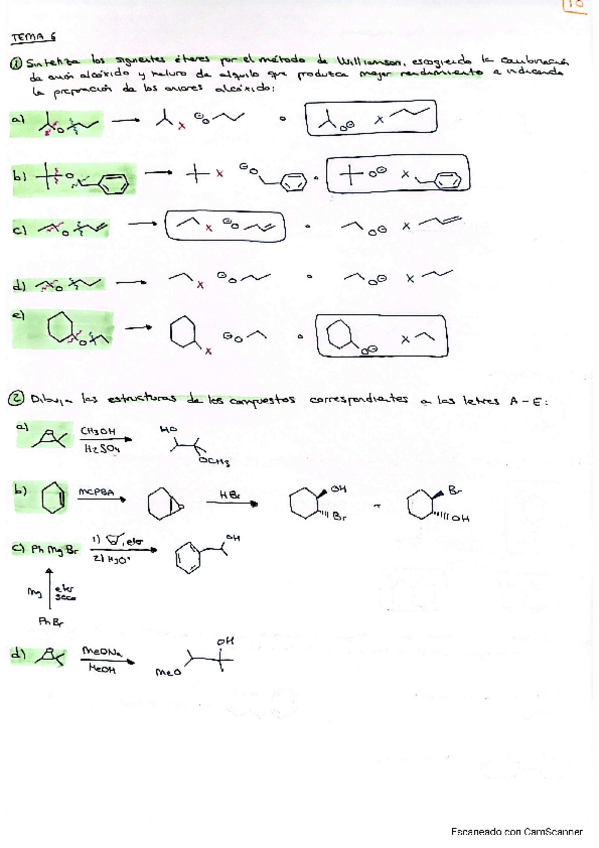 TEMA 6
① Sintetiza los siguientes éteres por el método de Williamson, escogiendo la combinación
de anión alcóxido y haluro de alquilo que produzca mejor rendimiento e indicando
la preparación de los aniones alcóxido:
a) O X ⊖O o O⊖ X
b) O X ⊖O o O⊖ X
c) O X ⊖O o O⊖ X
d) O X ⊖O o O⊖ X
e) O X ⊖O o O⊖ X
② Dibuja las estructuras de los compuestos correspondientes a las letras A-E:
a) O CH3OH H2SO4 HO OCH3
b) MCPBA O HBr OH Br + Br OH
c) PhMgBr 1) O, eter 2) H3O+ OH
Mg eter seco
PhBr
d) O MeONa MeOH MeO OH
Escaneado con CamScanner